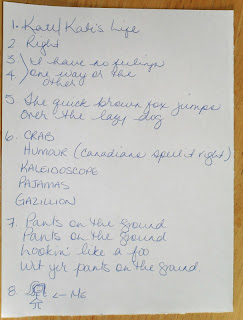 1. Kate/Kate's Life
2. Right
3. I have no feelings
4. one way or the
other
5 The quick brown fox jumps
over the lazy dog
6. CRAB
HUMOUR (Canadians spell it right)
KALEIDOSCOPE
PAJAMAS
GAZILLION
7. Pants on the ground
Pants on the ground
Lookin' like a foo
Wit yer pants on the ground.
8. ← ME